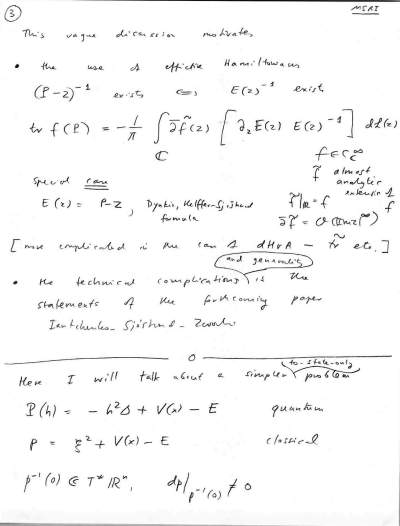 ③ MSRI
This vague discussion motivates
• the use of effective Hamiltonians
(P-z)⁻¹ exists ⇔ E(z)⁻¹ exists
tr f(P) = -1/π ∫_ℂ ∂̄f̃(z) [∂_z E(z) E(z)⁻¹] dL(z)
f ∈ C_c^∞
f̃ almost analytic extension of f
Special case
E(z) = P-z, Dynkin, Helffer-Sjöstrand formula
f̃|_ℝ = f
∂̄f̃ = O(|Im z|^∞)
[more complicated in the case of dHvA – t̃r etc.]
• the technical complications (and generality) is the
statements of the forthcoming paper
Iantchenko-Sjöstrand-Zworski
O
Here I will talk about a simpler (to-state-only) problem
P(h) = -h²Δ + V(x) - E quantum
p = ξ² + V(x) - E classical
p⁻¹(0) ⋐ T*ℝⁿ, dp|_{p⁻¹(0)} ≠ 0